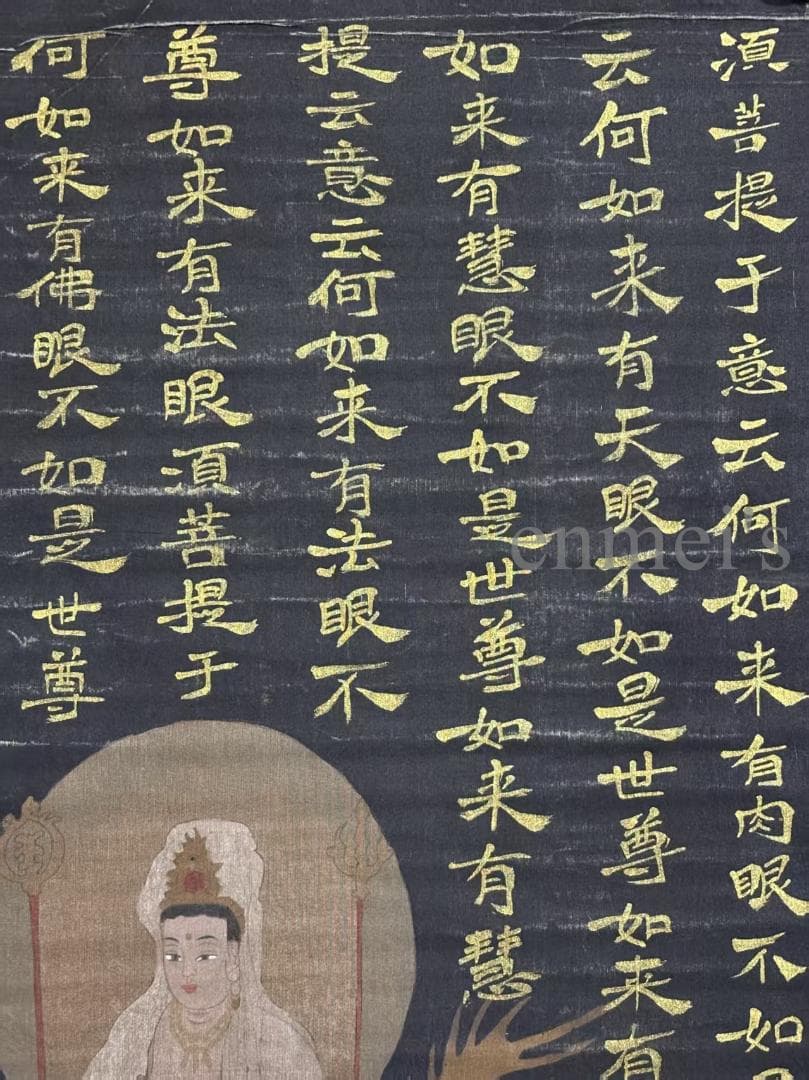 須菩提于意云何如来有肉眼不如
云何如来有天眼不如是世尊如来有
如来有慧眼不如是世尊如来有慧
提云意云何如来有法眼不
尊如来有法眼須菩提于
何如来有佛眼不如是世尊
enmei's